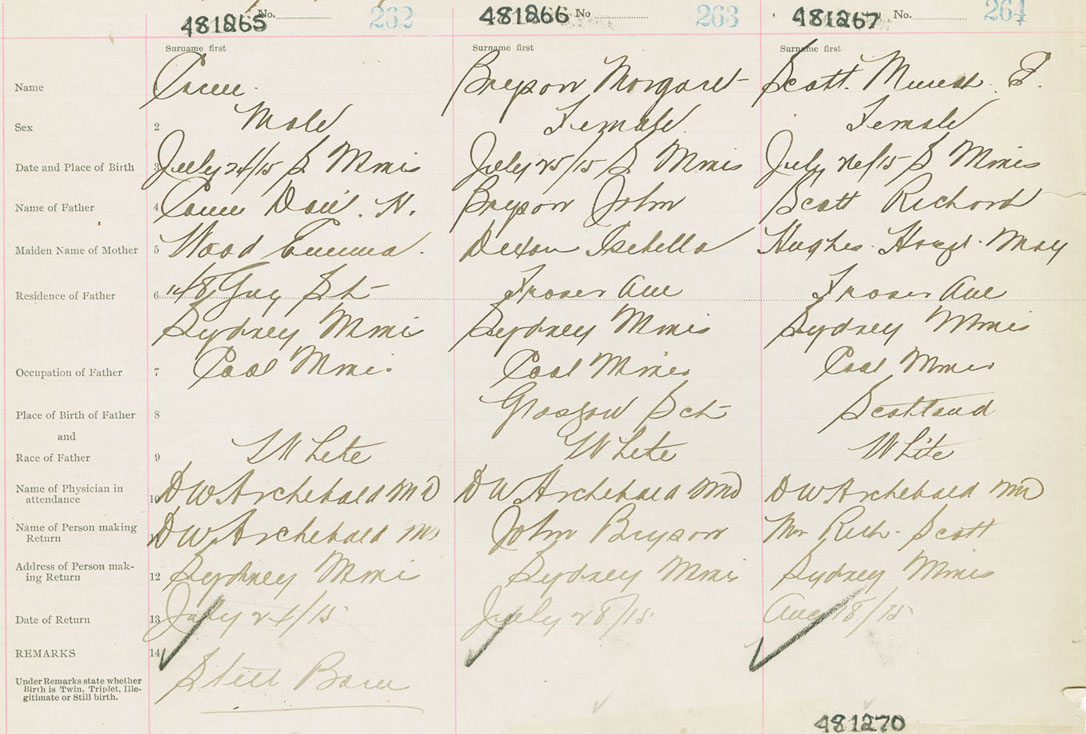 481265 No. 262 481266 No 263 481267 No. 264
Surname first Surname first Surname first
Name Bryson Margaret Scott E.
Sex 2 Male Female Female
Date and Place of Birth 3 July 24/15 S Mines July 25/15 S Mines July 26/15 S Mines
Name of Father 4 N. Bryson John Scott Richard
Maiden Name of Mother 5 Wood Emma. Dixon Isabella Hughes May
Residence of Father 6 Guy St Fraser Ave Fraser Ave
Sydney Mines Sydney Mines Sydney Mines
Occupation of Father 7 Coal Miner Coal Miner Coal Miner
Place of Birth of Father 8 Glasgow Sct Scotland
and
Race of Father 9 White White White
Name of Physician in
attendance 10 DW Archebald MD DW Archebald MD DW Archebald MD
Name of Person making
Return 11 DW Archebald MD John Bryson Mr Rich. Scott
Address of Person mak-
ing Return 12 Sydney Mines Sydney Mines Sydney Mines
Date of Return 13 July 24/15 July 28/15 Aug 18/15
REMARKS 14
Under Remarks state whether
Birth is Twin, Triplet, Ille-
gitimate or Still birth.
Still Born
481270